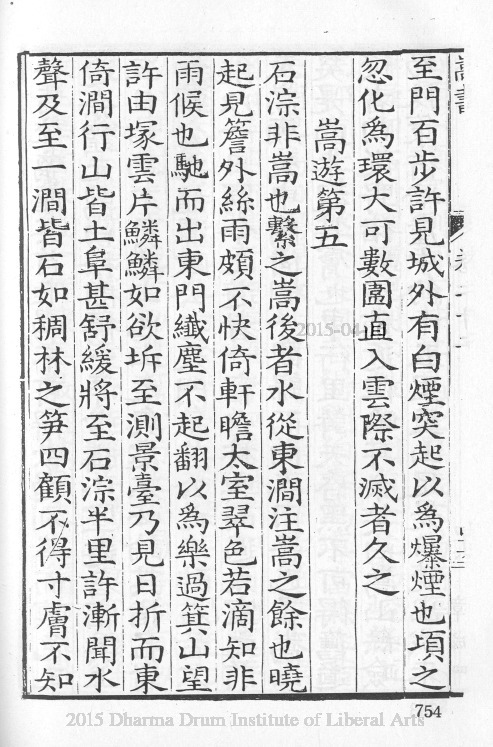 嵩書
至門百步許見城外有白煙突起以為爆煙也項之
忽化為環大可數圍直入雲際不滅者久之
嵩遊第五
石淙非嵩也繫之嵩後者水從東澗注嵩之餘也曉
起見簷外絲雨頗不快倚軒瞻太室翠色若滴知非
雨候也馳而出東門纖塵不起翻以為樂過箕山望
許由塚雲片鱗鱗如欲坼至測景臺乃見日折而東
倚澗行山皆土阜甚舒緩將至石淙半里許漸聞水
聲及至一澗皆石如稠林之笋四顧不得寸膚不知
2015-04-
754
2015 Dharma Drum Institute of Liberal Arts